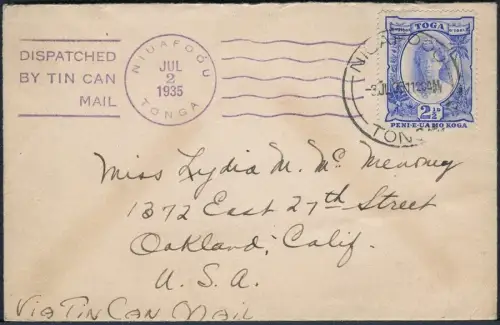 DISPATCHED
BY TIN CAN
MAIL
NIUAFOOU
JUL
2
1935
TONGA
TOGA
2½
PENI-E-UA MO KOGA
Miss Lydia M. Mc
1372 East 27th Street
Oakland, Calif.
U. S. A.
Via Tin Can Mail